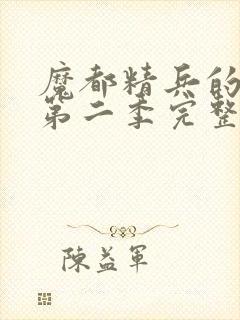 魔都精兵的
第二季完整
陳益軍